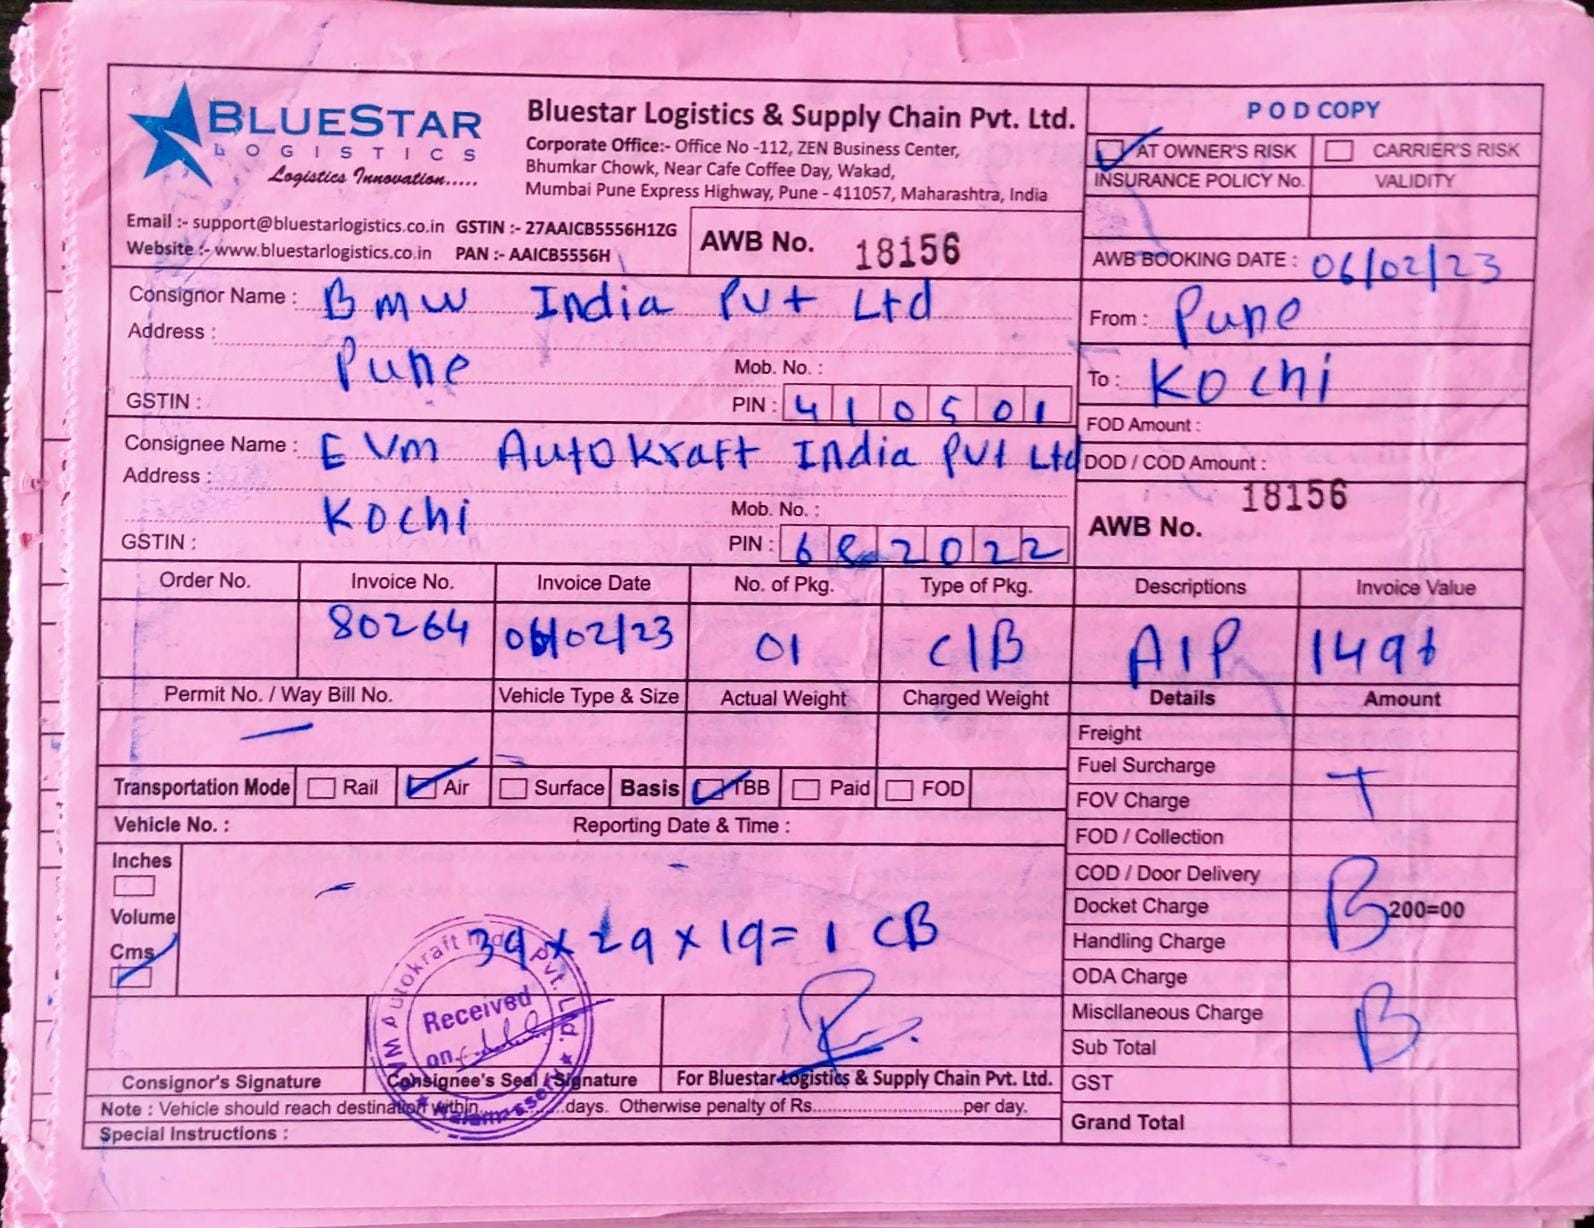 BLUESTAR
LOGISTICS
Logistics Innovation.....
Bluestar Logistics & Supply Chain Pvt. Ltd.
Corporate Office:- Office No -112, ZEN Business Center,
Bhumkar Chowk, Near Cafe Coffee Day, Wakad,
Mumbai Pune Express Highway, Pune - 411057, Maharashtra, India
Email :- support@bluestarlogistics.co.in GSTIN :- 27AAICB5556H1ZG
Website :- www.bluestarlogistics.co.in PAN :- AAICB5556H
AWB No. 18156
P O D COPY
AT OWNER'S RISK CARRIER'S RISK
INSURANCE POLICY No. VALIDITY
AWB BOOKING DATE : 06/02/23
Consignor Name : BMW India Pvt Ltd
Address :
Pune
Mob. No. :
GSTIN :
PIN : 410501
From : Pune
To : Kochi
FOD Amount :
DOD / COD Amount :
Consignee Name : EVM Autokraft India Pvt Ltd
Address :
Kochi
Mob. No. :
GSTIN :
PIN : 682022
18156
AWB No.
Order No. Invoice No. Invoice Date No. of Pkg. Type of Pkg. Descriptions Invoice Value
80264 06/02/23 01 C/B A/P
Permit No. / Way Bill No. Vehicle Type & Size Actual Weight Charged Weight Details Amount
Transportation Mode Rail Air Surface Basis TBB Paid FOD
Vehicle No. : Reporting Date & Time :
Inches
Volume
Cms
39 x 29 x 19 = 1 CB
Freight
Fuel Surcharge
T
FOV Charge
FOD / Collection
COD / Door Delivery
B
Docket Charge 200=00
Handling Charge
ODA Charge
Miscllaneous Charge
B
Sub Total
GST
Grand Total
Autokraft India Pvt. Ltd.
Received
on
Consignor's Signature Consignee's Seal / Signature For Bluestar Logistics & Supply Chain Pvt. Ltd.
Note : Vehicle should reach destination within..............days. Otherwise penalty of Rs..............................per day.
Special Instructions :